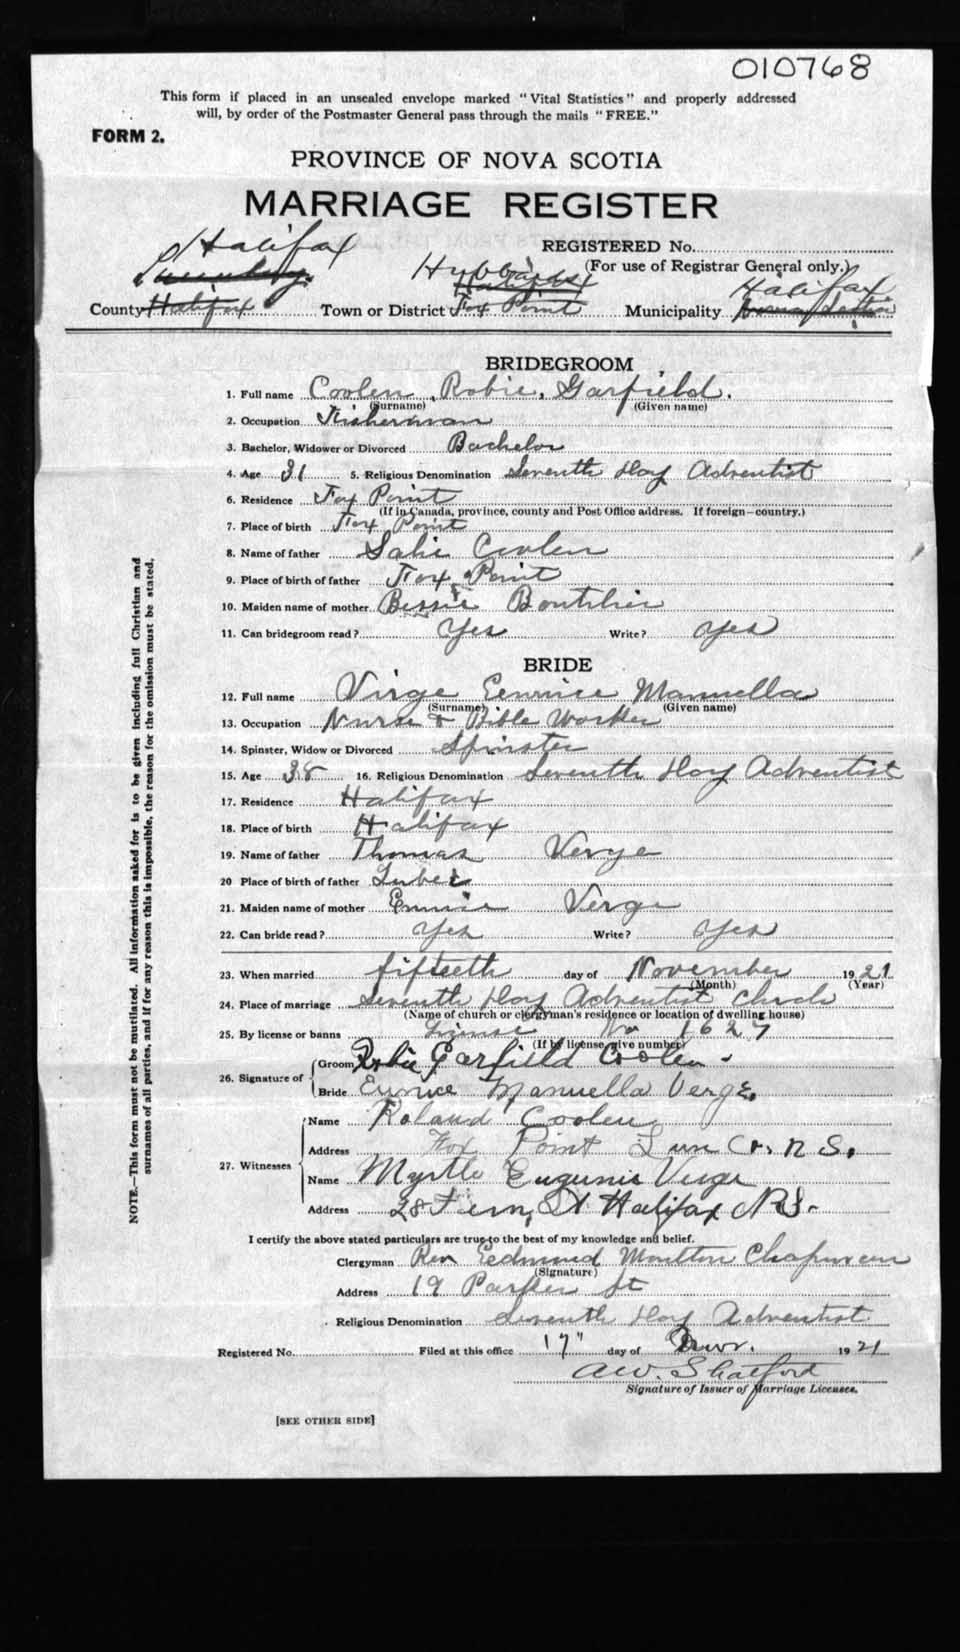 010768
This form if placed in an unsealed envelope marked "Vital Statistics" and properly addressed
will, by order of the Postmaster General pass through the mails "FREE."
FORM 2.
PROVINCE OF NOVA SCOTIA
MARRIAGE REGISTER
REGISTERED No.
(For use of Registrar General only.)
Halifax Hubbards Halifax
Lunenburg Halifax
County Halifax Town or District Fox Point Municipality
BRIDEGROOM
1. Full name Coolen, Robie, Garfield.
(Surname) (Given name)
2. Occupation Fisherman
3. Bachelor, Widower or Divorced Bachelor
4. Age 31 5. Religious Denomination Seventh Day Adventist
6. Residence Fox Point
(If in Canada, province, county and Post Office address. If foreign—country.)
7. Place of birth Fox Point
8. Name of father Coolen
9. Place of birth of father Fox Point
10. Maiden name of mother Bessie Boutilier
11. Can bridegroom read? Yes Write? Yes
BRIDE
12. Full name Virge Eunice Manuella
(Surname) (Given name)
13. Occupation Nurse & Bible Worker
14. Spinster, Widow or Divorced Spinster
15. Age 38 16. Religious Denomination Seventh Day Adventist
17. Residence Halifax
18. Place of birth Halifax
19. Name of father Thomas Verge
20 Place of birth of father
21. Maiden name of mother Verge
22. Can bride read? Yes Write? Yes
23. When married fifteeth day of November 1921
(Month) (Year)
24. Place of marriage Seventh Day Adventist Church
(Name of church or clergyman's residence or location of dwelling house)
25. By license or banns License No 1627
(If by license, give number)
26. Signature of Groom Robie Garfield Coolen.
Bride Eunice Manuella Verge.
27. Witnesses Name Roland Coolen
Address Fox Point Lun Co. N S.
Name Myrtle Eugunie Verge
Address 28 Fern St Halifax N.S.
I certify the above stated particulars are true to the best of my knowledge and belief.
Clergyman Rev Eedmund Moulton Chapman
(Signature)
Address 19 Parker St
Religious Denomination Seventh Day Adventist
Registered No. Filed at this office 17" day of Novr. 1921
A W. Shatford
Signature of Issuer of Marriage Licenses.
[SEE OTHER SIDE]
NOTE.—This form must not be mutilated. All information asked for is to be given including full Christian and
surnames of all parties, and if for any reason this is impossible, the reason for the omission must be stated.